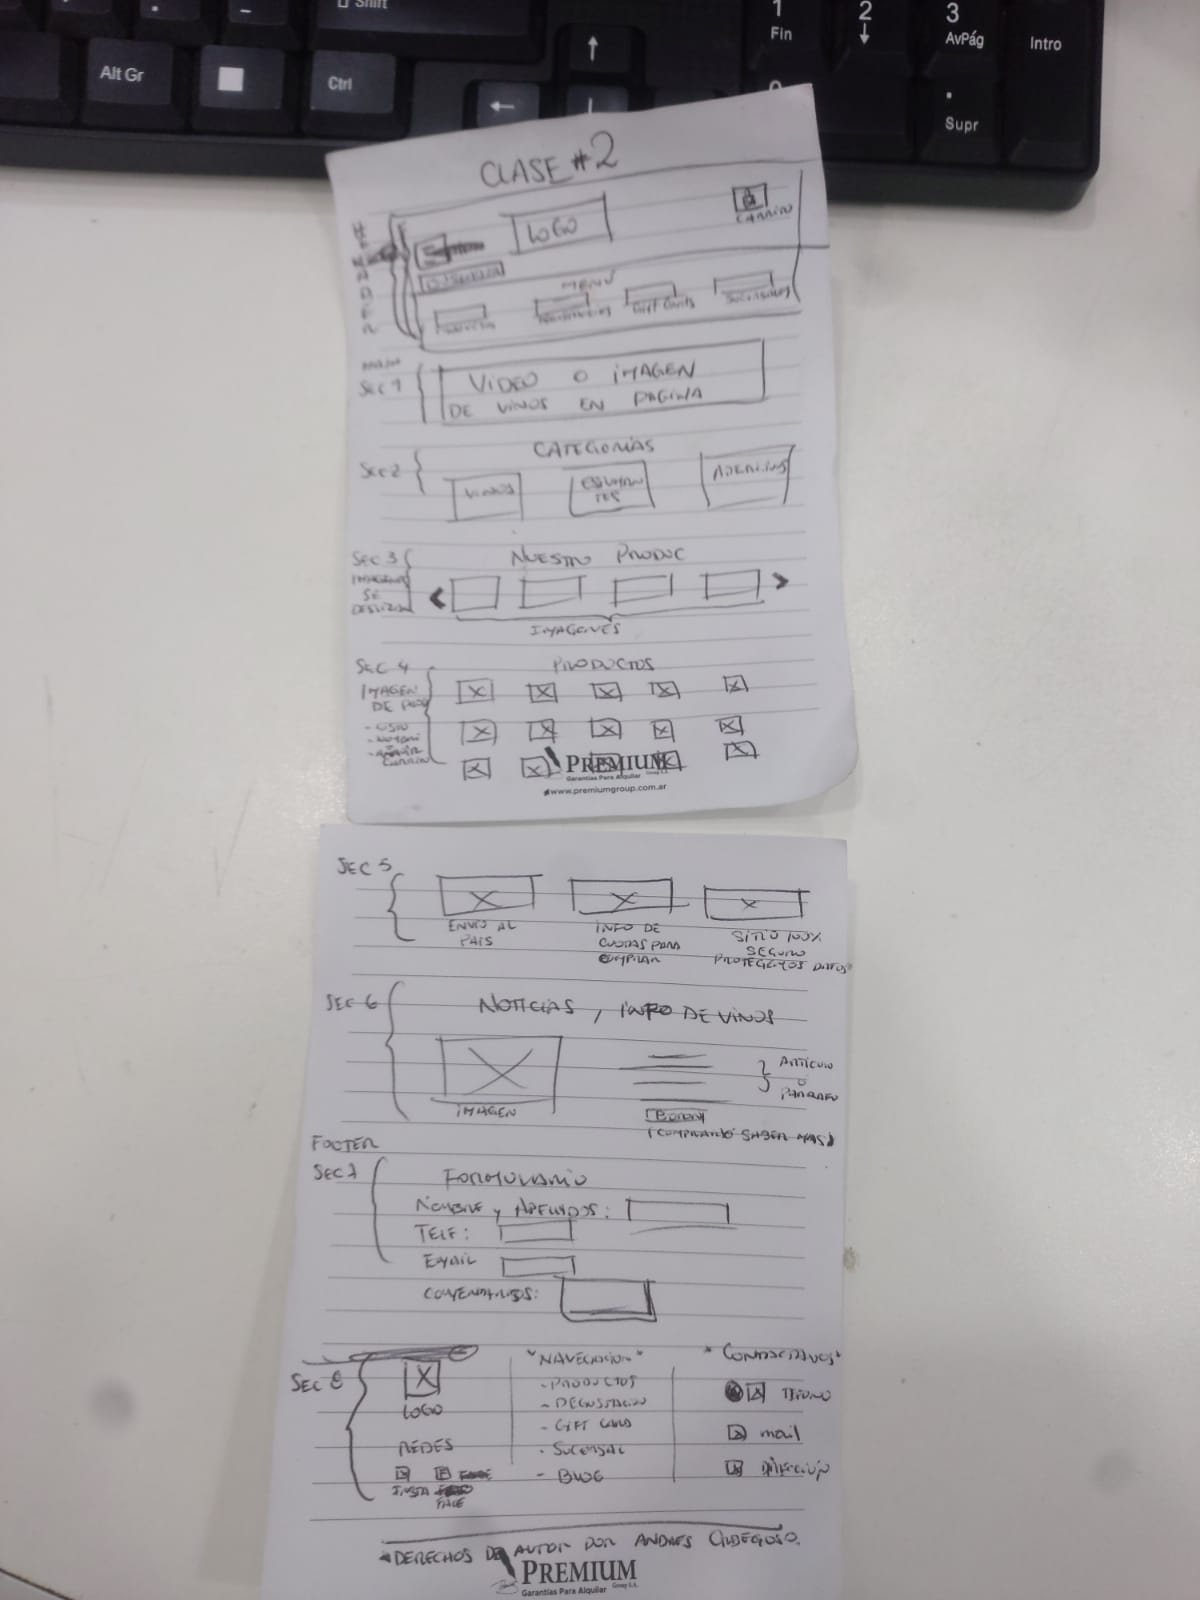 Shift
1
Fin
2
3
AvPág
Intro
Alt Gr
Ctrl
Supr
CLASE #2
HEADER
LOGO
CARRITO
BUSQUEDA
MENU
PRODUCTOS
Gift Cards
SUCURSALES
MAIN
SEC 1
VIDEO O IMAGEN
DE VINOS EN PAGINA
SEC 2
CATEGORIAS
VINOS
ESPUMAN
TES
SEC 3
NUESTRO PRODUC
IMAGENES
SE
DESLIZAN
IMAGENES
SEC 4
PRODUCTOS
IMAGEN
DE PROD
- COSTO
- NOMBRE
- AÑADIR
CARRITO
PREMIUM
Garantías Para Alquilar Group S.A.
www.premiumgroup.com.ar
SEC 5
ENVIO AL
PAIS
INFO DE
CUOTAS PARA
COMPRAR
SITIO 100%
SEGURO
PROTEGEMOS DATOS
SEC 6
NOTICIAS, INFO DE VINOS
IMAGEN
ARTICULO
O
PARRAFO
BOTON
(COMPRAR O SABER MAS)
FOOTER
SEC 7
FORMULARIO
NOMBRE y APELLIDOS:
TELF:
EMAIL
COMENTARIOS:
SEC 8
LOGO
REDES
INSTA
FACE
"NAVEGACION"
- PRODUCTOS
- DEGUSTACION
- GIFT CARD
- SUCURSAL
- BLOG
"CONTACTANOS"
mail
DIRECCION
DERECHOS DE AUTOR POR ANDRES
PREMIUM
Garantías Para Alquilar Group S.A.